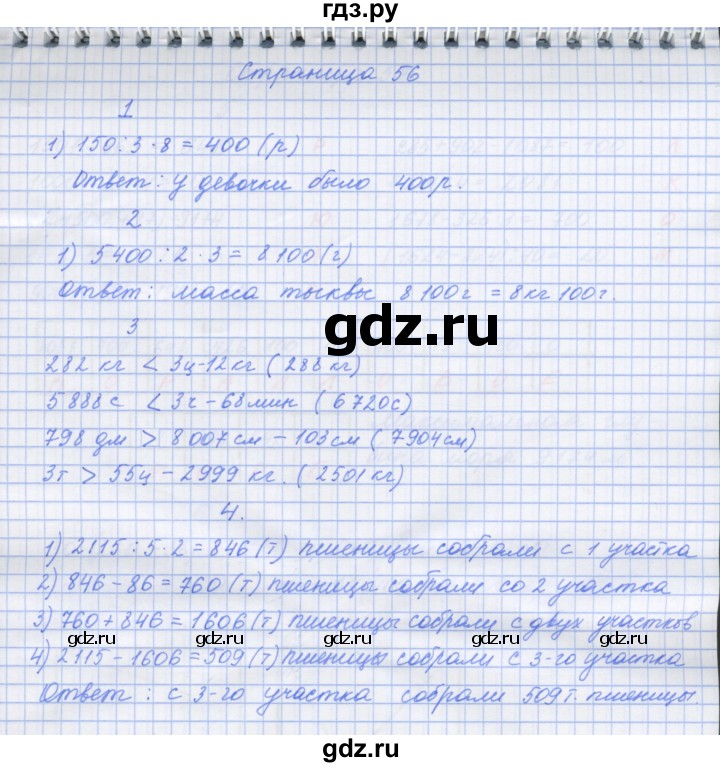 гдз.ру
Страница 56
1
1) 150 : 3 · 8 = 400 (р)
Ответ: у девочки было 400р.
2
1) 5400 : 2 · 3 = 8100 (г)
Ответ: масса тыквы 8100г = 8кг 100г.
3
gdz.ru
282 кг < 3ц-12кг (288кг)
5888с < 3ч - 68мин (6720с)
798 дм > 8007см - 103см (7904см)
3т > 55ц - 2999 кг. (2501кг)
4.
1) 2115 : 5 · 2 = 846 (т) пшеницы собрали с 1 участка
2) 846 - 86 = 760 (т) пшеницы собрали со 2 участка
3) 760 + 846 = 1606 (т) пшеницы собрали с двух участков
gdz.ru gdz.ru gdz.ru gdz.ru gdz.ru
4) 2115 - 1606 = 509 (т) пшеницы собрали с 3-го участка
Ответ: с 3-го участка собрали 509т. пшеницы.
gdz.ru